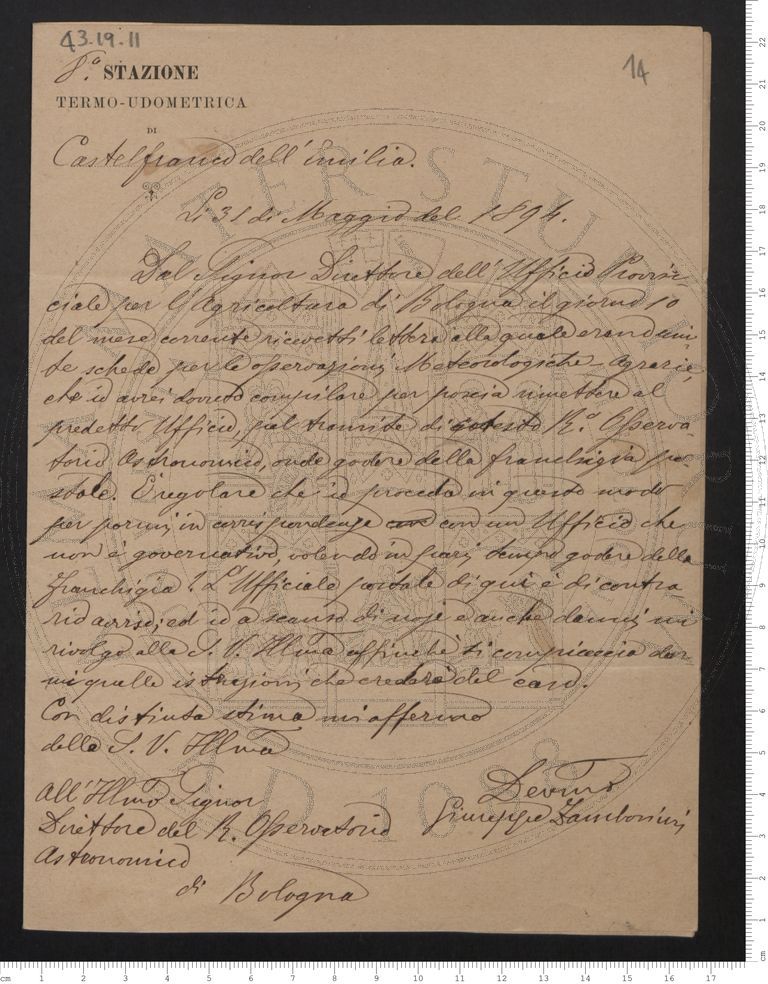 43.19.11
14
8.a STAZIONE
TERMO-UDOMETRICA
DI
Castelfranco dell'Emilia.
Li 31 di Maggio del 1894.
Dal Signor Direttore dell'Ufficio Provin-
ciale per l'Agricoltura di Bologna il giorno 10
del mese corrente ricevetti lettera alla quale erano uni-
te schede per le osservazioni Meteorologiche-Agrarie,
che io avrei dovuto compilare per poscia rimettere al
predetto Ufficio, pel tramite di cotesto R.o Osserva-
torio Astronomico, onde godere della franchigia po-
stale. È regolare che io proceda in questo modo
per pormi in corrispondenza con con un Ufficio che
non è governativo, volendo in pari tempo godere della
franchigia? L'Ufficiale postale di qui è di contra-
rio avviso; ed io a scanso di noje e anche danni, mi
rivolgo alla S. V. Illma affinchè si compiaccia dar-
mi quelle istruzioni che crederà del caso.
Con distinta stima mi affermo
della S. V. Illma
Devmo
Giuseppe Zambonini
All'Illmo Signor
Direttore del R. Osservatorio
Astronomico
di Bologna
ALMA MATER STUDIORUM
A.D. 1088
cm 1 2 3 4 5 6 7 8 9 10 11 12 13 14 15 16 17
cm 1 2 3 4 5 6 7 8 9 10 11 12 13 14 15 16 17 18 19 20 21 22